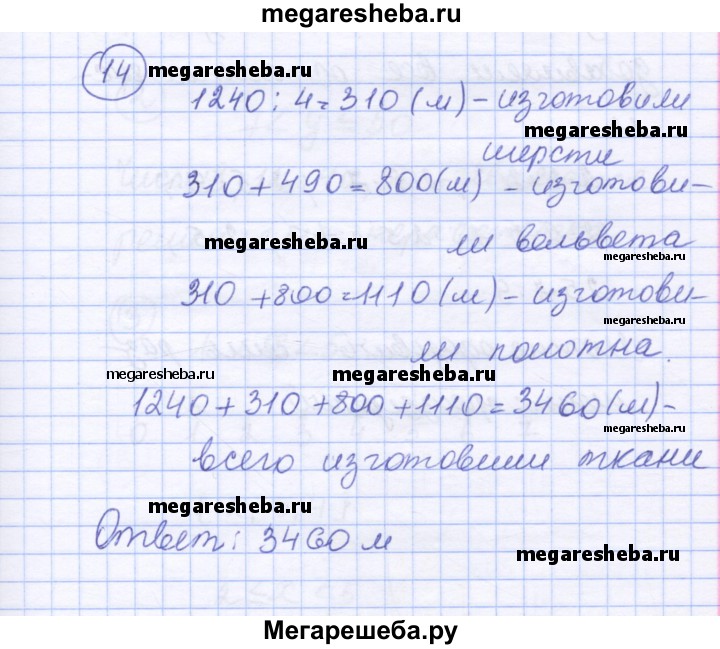 megaresheba.ru
14 megaresheba.ru
1240 : 4 = 310 (м) - изготовили
megaresheba.ru
шерсти
310 + 490 = 800 (м) - изготови-
megaresheba.ru
ли вельвета
310 + 800 = 1110 (м) - изготови-
megaresheba.ru
ли полотна.
megaresheba.ru megaresheba.ru
1240 + 310 + 800 + 1110 = 3460 (м) -
megaresheba.ru
всего изготовили ткани
megaresheba.ru
Ответ: 3460 м
megaresheba.ru
Мегарешеба.ру